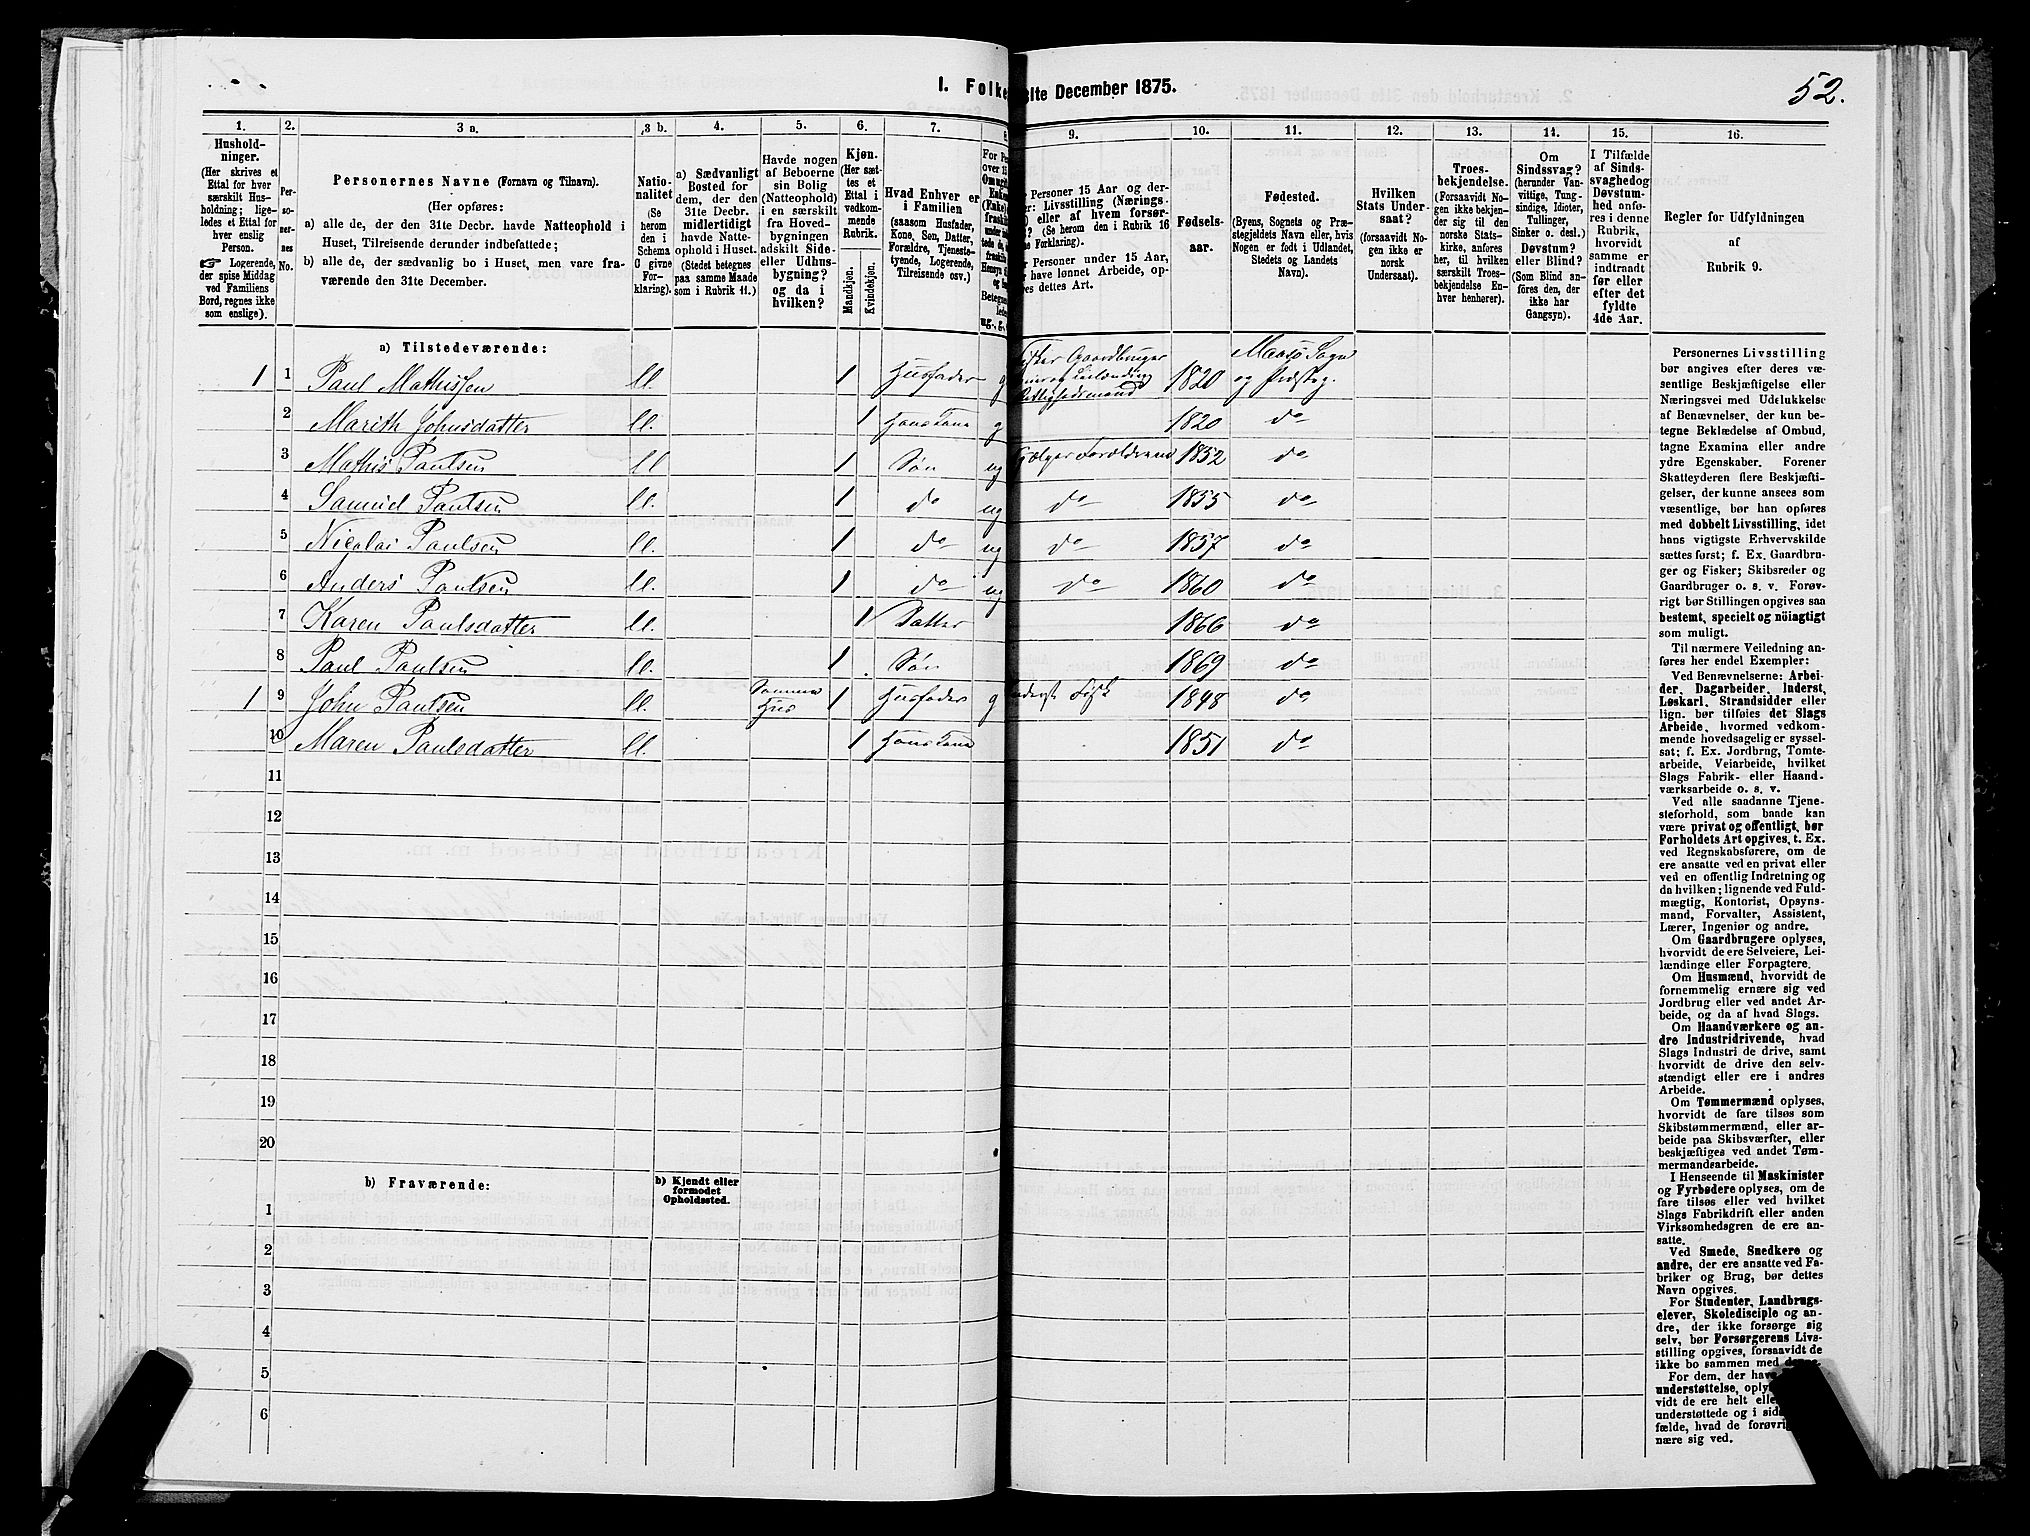 I. Folke
52.
1.
2.
3 a.
3 b.
4.
5.
6.
7.
8.
Hushold-
ninger.
(Her skrives et
Ettal for hver
særskilt Hus-
holdning; lige-
ledes et Ettal for
hver enslig
Person.
☞ Logerende,
der spise Middag
ved Familiens
Bord, regnes ikke
som enslige).
Per-
so-
ner-
nes
No.
Personernes Navne (Fornavn og Tilnavn).
(Her opføres:
a) alle de, der den 31te Decbr. havde Natteophold i
Huset, Tilreisende derunder indbefattede;
b) alle de, der sædvanlig bo i Huset, men vare fra-
værende den 31te December.
Natio-
nalitet
(Se
herom
den i
Schema
O givne
For-
klaring).
a) Sædvanligt
Bosted for
dem, der den
31te Decbr.
midlertidigt
havde Natte-
ophold i Huset.
(Stedet betegnes
paa samme Maade
som i Rubrik 11.)
Havde nogen
af Beboerne
sin Bolig
(Natteophold)
i en særskilt
fra Hoved-
bygningen
adskilt Side-
eller Udhus-
bygning?
og da i
hvilken?
Kjøn.
(Her sæt-
tes et
Ettal i
vedkom-
mende
Rubrik.
Mandkjøn.
Kvindekjøn.
Hvad Enhver er
i Familien
(saasom Husfader,
Kone, Søn, Datter,
Forældre, Tjeneste-
tyende, Logerende,
Tilreisende osv.)
a) Tilstedeværende:
1 1 Paul Mathissen ll. 1 Husfader g
2 Marith Johnsdatter ll. 1 Hans Kone g
3 Mathis Paulsen ll 1 Søn ug
4 Samuel Paulsen ll. 1 do ug
5 Nicolai Paulsen ll. 1 do ug
6 Anders Paulsen ll. 1 do ug
7 Karen Paulsdatter ll. 1 Datter
8 Paul Paulsen ll. 1 Søn
1 9 John Paulsen ll. Samme Hus 1 Husfader g
10 Maren Paulsdatter ll. 1 Hans Kone
11
12
13
14
15
16
17
18
19
20
b) Fraværende:
b) Kjendt eller
formodet
Opholdssted.
1
2
3
4
5
6
lte December 1875.
9.
10.
11.
12.
13.
14.
15.
16.
Personer 15 Aar og der-
er: Livsstilling (Nærings-
) eller af hvem forsør-
? (Se herom den i Rubrik 16
e Forklaring).
Personer under 15 Aar,
have lønnet Arbeide, op-
es dettes Art.
Fødsels-
aar.
Fødested.
(Byens, Sognets og Præ-
stegjeldets Navn eller, hvis
Nogen er født i Udlandet,
Stedets og Landets
Navn).
Hvilken
Stats Under-
saat?
(forsaavidt No-
gen ikke er
norsk
Undersaat).
Troes-
bekjendelse.
(Forsaavidt No-
gen ikke bekjen-
der sig til den
norske Stats-
kirke, anføres
her, til hvilken
særskilt Troes-
bekjendelse En-
hver henhører).
Om
Sindssvag?
(herunder Van-
vittige, Tung-
sindige, Idioter,
Tullinger,
Sinker o. desl.)
Døvstum?
eller Blind?
(Som Blind an-
føres den, der
ikke har
Gangsyn).
I Tilfælde
af Sinds-
svaghed og
Døvstum-
hed anfø-
res i denne
Rubrik,
hvorvidt
samme er
indtraadt
før eller
efter det
fyldte
4de Aar.
Regler for Udfyldningen
af
Rubrik 9.
Fisker Gaardbruger 1820 Maasø Sogn
og Prdstog.
1820 do
1852 do
do 1855 do
do 1857 do
do 1860 do
1866 do
1869 do
1848 do
1851 do
Personernes Livsstilling
bør angives efter deres væ-
sentlige Beskjæftigelse eller
Næringsvei med Udelukkelse
af Benævnelser, der kun be-
tegne Beklædelse af Ombud,
tagne Examina eller andre
ydre Egenskaber. Forener
Skatteyderen flere Beskjæfti-
gelser, der kunne ansees som
væsentlige, bør han opføres
med dobbelt Livsstilling, idet
hans vigtigste Erhvervskilde
sættes først; f. Ex. Gaardbru-
ger og Fisker; Skibsreder og
Gaardbruger o. s. v. Forøv-
rigt bør Stillingen opgives saa
bestemt, specielt og nöiagtigt
som muligt.
Til nærmere Veiledning an-
føres her endel Exempler:
Ved Benævnelserne: Arbei-
der, Dagarbeider, Inderst,
Løskarl, Strandsidder eller
lign. bør tilføies det Slags
Arbeide, hvormed vedkom-
mende hovedsagelig er syssel-
sat; f. Ex. Jordbrug, Tomte-
arbeide, Veiarbeide, hvilket
Slags Fabrik- eller Haand-
værksarbeide o. s. v.
Ved alle saadanne Tjene-
steforhold, som baade kan
være privat og offentligt, bør
Forholdets Art opgives, t. Ex.
ved Regnskabsførere, om de
ere ansatte ved en privat eller
ved en offentlig Indretning og
da hvilken; lignende ved Fuld-
mægtig, Kontorist, Opsyns-
mand, Forvalter, Assistent,
Lærer, Ingeniør og andre.
Om Gaardbrugere oplyses,
hvorvidt de ere Selveiere, Lei-
lændinge eller Forpagtere.
Om Husmænd, hvorvidt de
fornemmelig ernære sig ved
Jordbrug eller ved andet Ar-
beide, og da af hvad Slags.
Om Haandværkere og an-
dre Industridrivende, hvad
Slags Industri de drive, samt
hvorvidt de drive den selv-
stændigt eller ere i andres
Arbeide.
Om Tømmermænd oplyses,
hvorvidt de fare tilsøs som
Skibstømmermænd, eller ar-
beide paa Skibsværfter, eller
beskjæftiges ved andet Tøm-
mermandsarbeide.
I Henseende til Maskinister
og Fyrbødere oplyses, om de
fare tilsøs eller ved hvilket
Slags Fabrikdrift eller anden
Virksomhedsgren de ere an-
satte.
Ved Smede, Snedkere og
andre, der ere ansatte ved Fa-
briker og Brug, bør dettes
Navn opgives.
For Studenter, Landbrugs-
elever, Skoledisciple og an-
dre, der ikke forsørge sig
selv, bør Forsørgerens Livs-
stilling opgives, forsaavidt de
ikke bo sammen med
For dem, der have
understøttelse, oply
vidt de ere helt elle
understøttede og i sid
fælde, hvad de forøvri
nære sig ved.